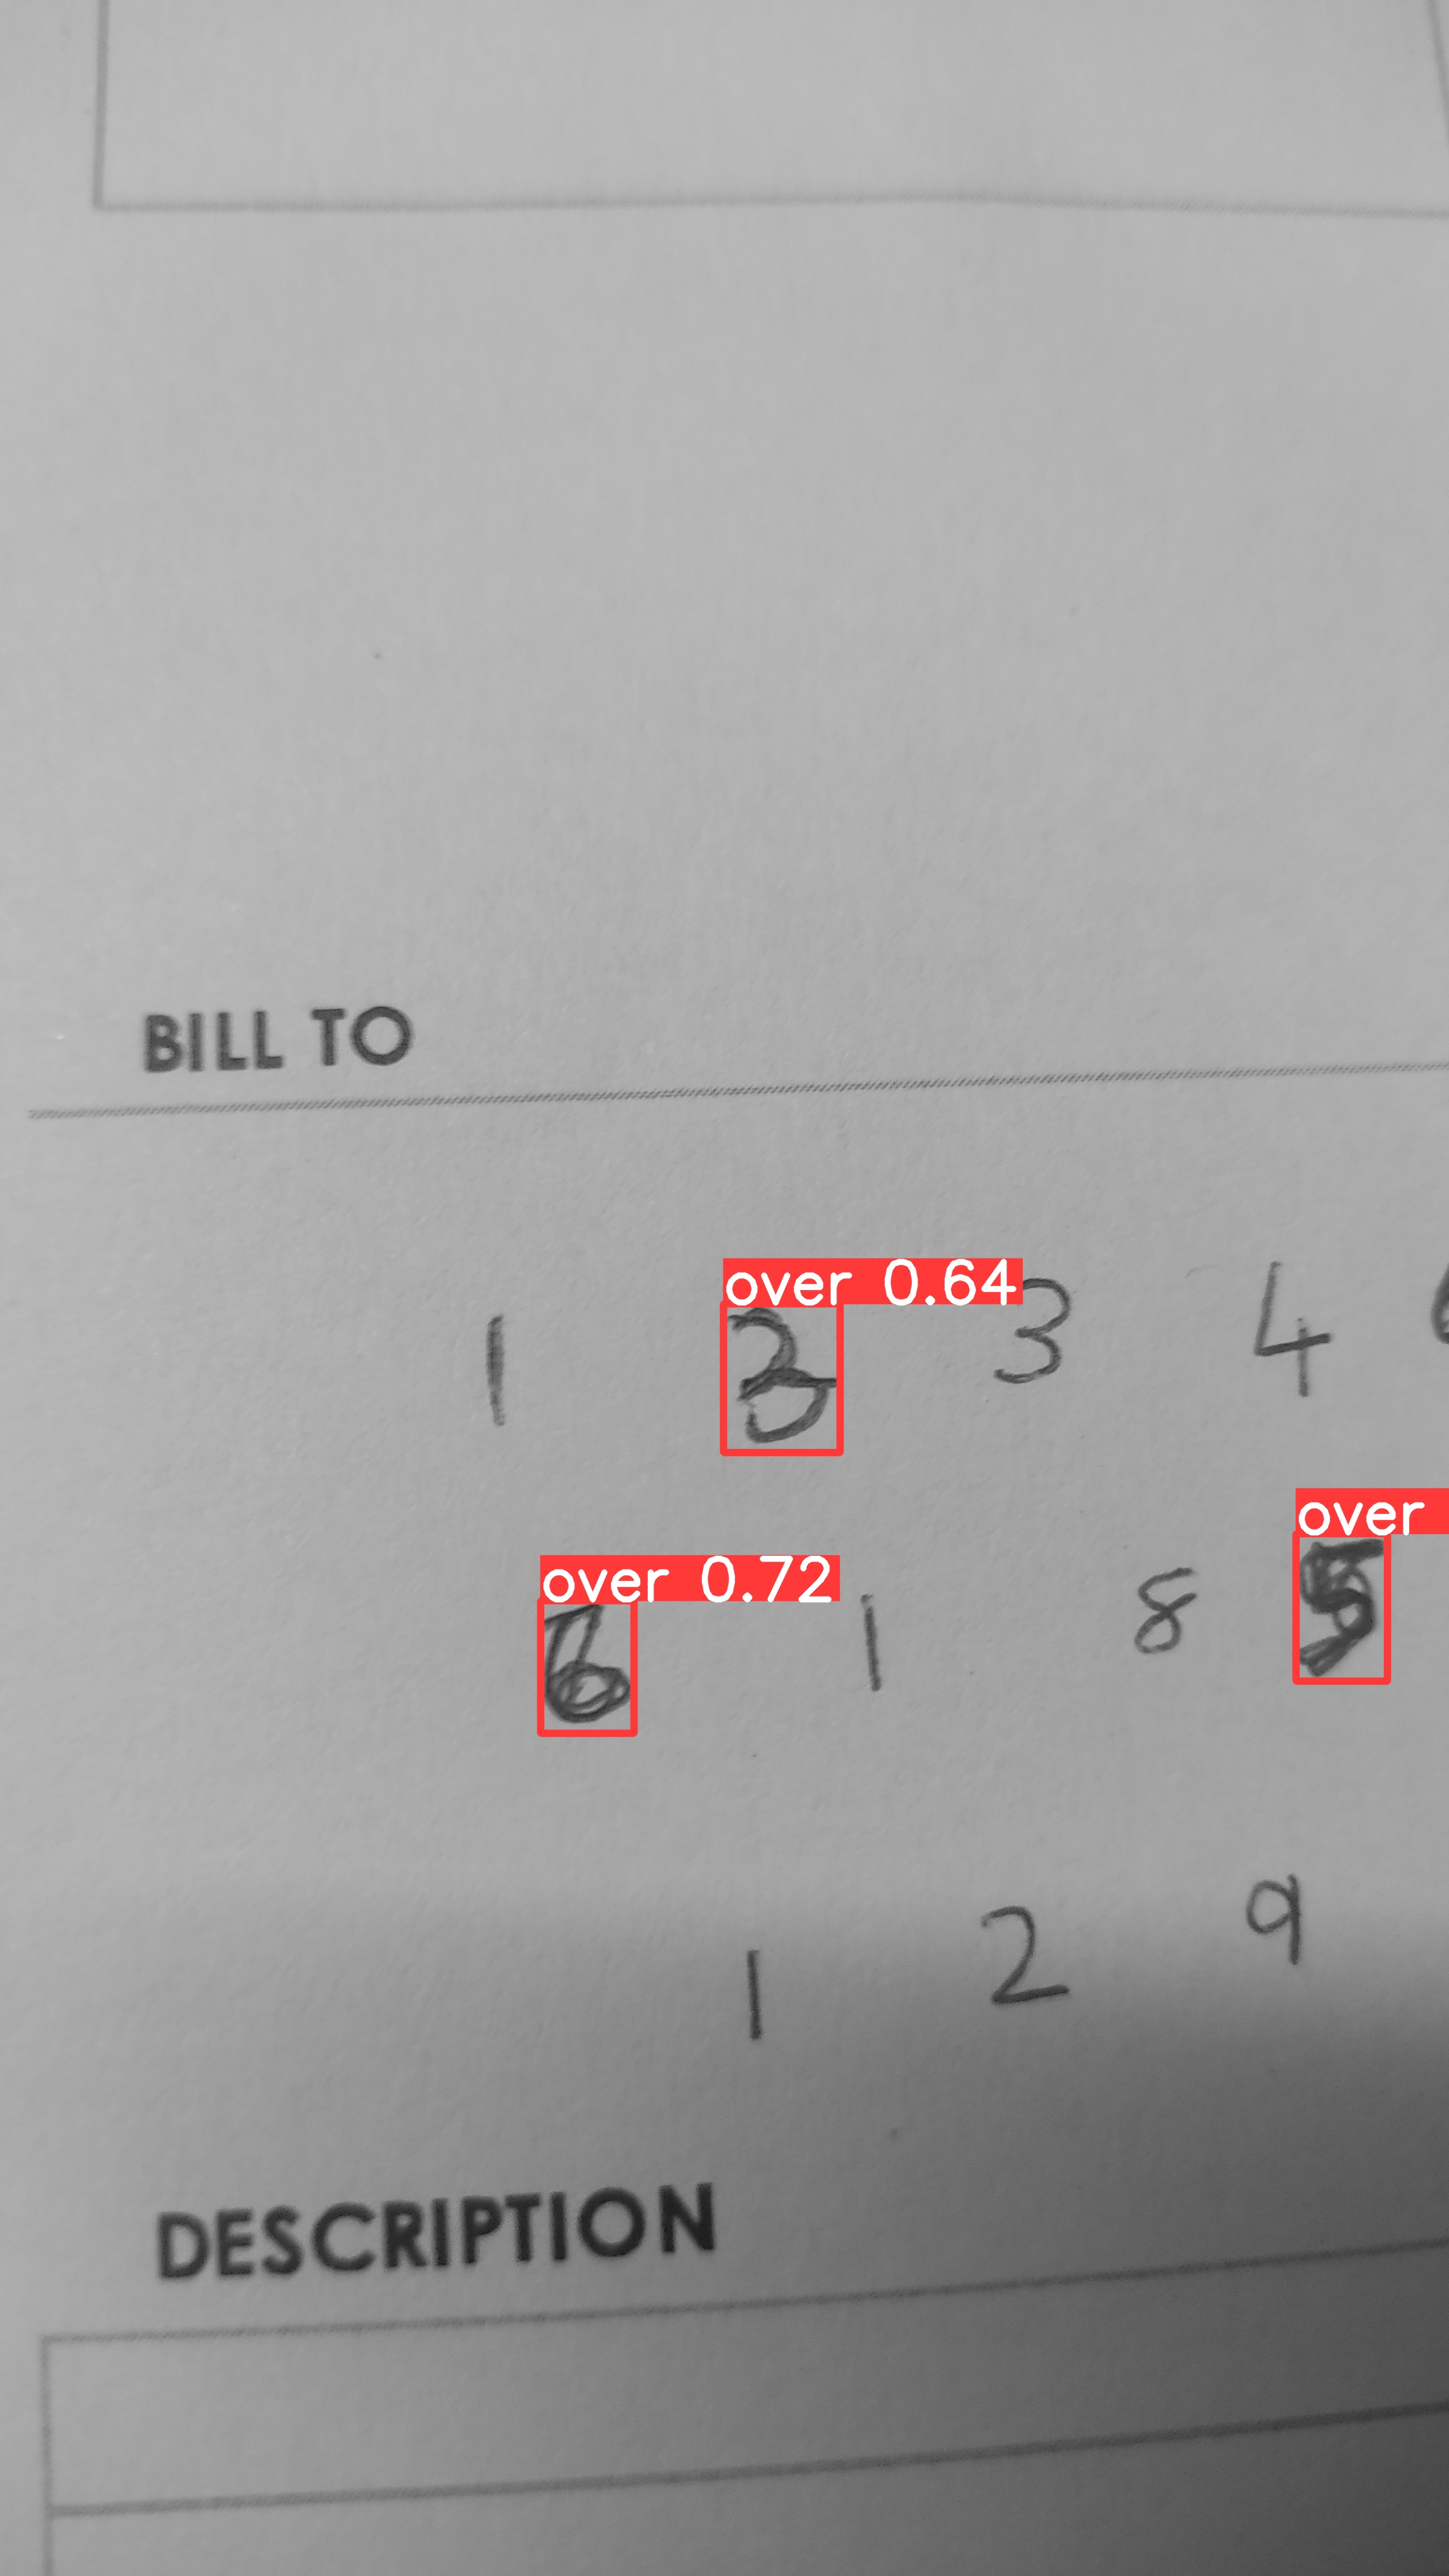 BILL TO
over 0.64
1 3 4
over 0.72 over
1 8 5
1 2 9
DESCRIPTION